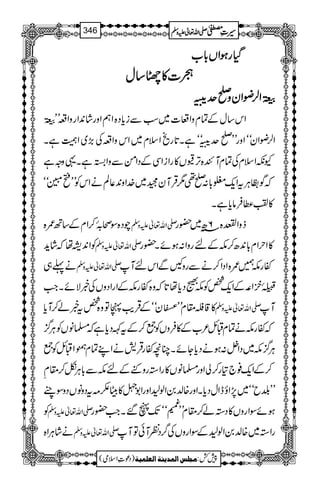 سیرتِ مصطفیٰ صلی اللہ تعالیٰ علیہ وسلم
346
گیارھواں باب
ہجرت کا چھٹا سال
بیعۃ الرضوان و صلح حدیبیہ
اس سال کے تمام واقعات میں سب سے زیادہ اہم اور شاندار واقعہ ”بیعۃ
الرضوان“ اور ”صلح حدیبیہ“ ہے۔ تاریخ اسلام میں اس واقعہ کی بڑی اہمیت ہے۔
کیونکہ اسلام کی تمام آئندہ ترقیوں کا راز اسی کے دامن سے وابستہ ہے۔ یہی وجہ ہے
کہ گو بظاہر یہ ایک مغلوبانہ صلح تھی مگر قرآن مجید میں خداوند عالم نے اس کو ”فتح مبین“
کا لقب عطا فرمایا ہے۔
ذوالقعدہ ۶ھ میں حضور صلی اللہ تعالیٰ علیہ وسلم چودہ سو صحابہ کرام کے ساتھ عمرہ
کا احرام باندھ کر مکہ کے لئے روانہ ہوئے۔ حضور صلی اللہ تعالیٰ علیہ وسلم کو اندیشہ تھا کہ شاید
کفار مکہ ہمیں عمرہ ادا کرنے سے روکیں گے اس لئے آپ صلی اللہ تعالیٰ علیہ وسلم نے پہلے ہی
قبیلۂ خزاعہ کے ایک شخص کو مکہ بھیج دیا تھا تاکہ وہ کفار مکہ کے ارادوں کی خبر لائے۔ جب
آپ صلی اللہ تعالیٰ علیہ وسلم کا قافلہ مقام ”عسفان“ کے قریب پہنچا تو وہ شخص یہ خبر لے کر آیا
کہ کفار مکہ نے تمام قبائل عرب کے کافروں کو جمع کر کے یہ کہہ دیا ہے کہ مسلمانوں کو ہرگز
ہرگز مکہ میں داخل نہ ہونے دیا جائے۔ چنانچہ کفار قریش نے اپنے تمام ہمنوا قبائل کو جمع
کر کے ایک فوج تیار کر لی اور مسلمانوں کا راستہ روکنے کے لئے مکہ سے باہر نکل کر مقام
”بلدح“ میں پڑاؤ ڈال دیا۔ اور خالد بن الولید اور ابوجہل کا بیٹا عکرمہ یہ دونوں دو سو چنے
ہوئے سواروں کا دستہ لے کر مقام ”غمیم“ تک پہنچ گئے۔ جب حضور صلی اللہ تعالیٰ علیہ وسلم کو
راستہ میں خالد بن الولید کے سواروں کی گرد نظر آئی تو آپ صلی اللہ تعالیٰ علیہ وسلم نے شاہراہ
پیش کش: مجلس المدینۃ العلمیۃ (دعوتِ اسلامی)